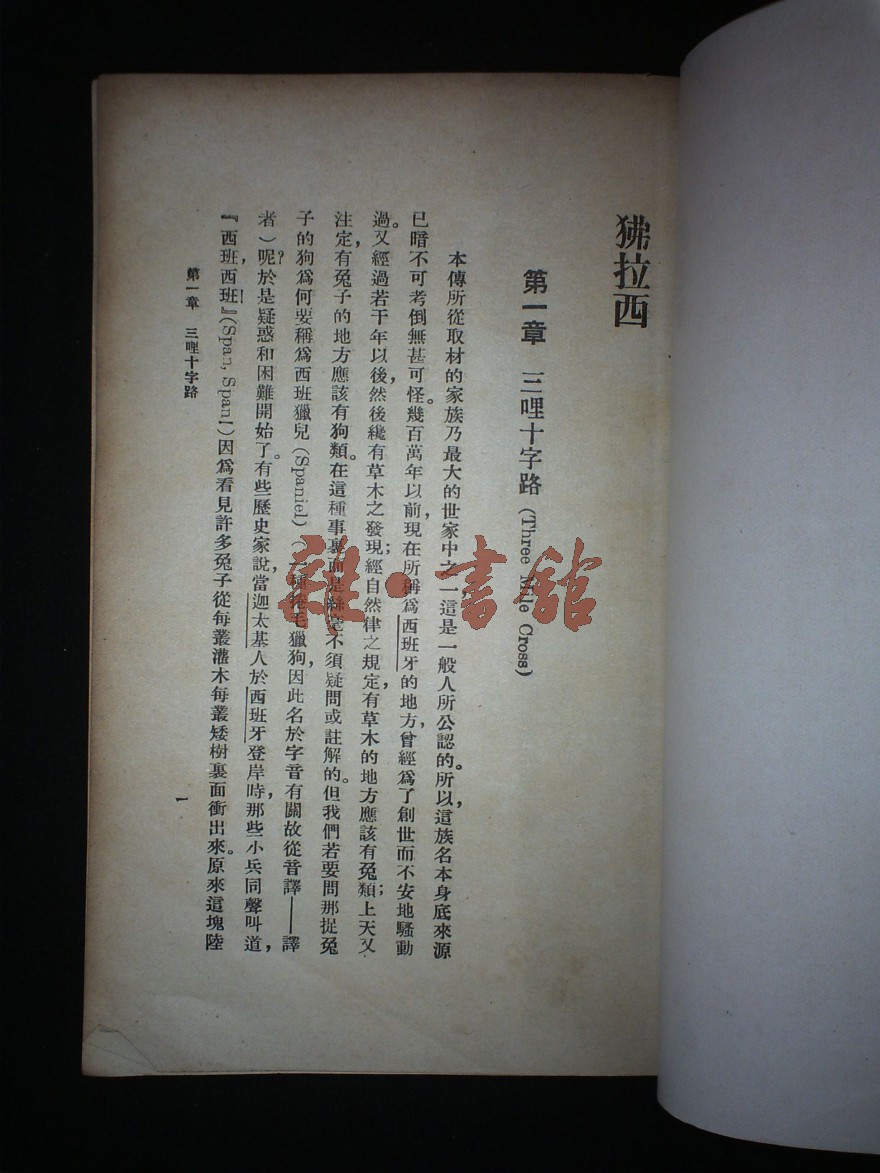 狒拉西
第一章 三哩十字路 (Three Mile Cross)
本傳所從取材的家族乃最大的世家中之一這是一般人所公認的。所以，這族名本身底來源
已暗不可考倒無甚可怪。幾百萬年以前，現在所稱爲西班牙的地方，曾經爲了創世而不安地騷動
過。又經過若干年以後，然後纔有草木之發現；經自然律之規定，有草木的地方應該有兔類；上天又
注定，有兔子的地方應該有狗類。在這種事裏面是絲毫不須疑問或註解的。但我們若要問那捉兔
子的狗爲何要稱爲西班獵兒(Spaniel)（一種捲毛獵狗，因此名於字音有關故從音譯——譯
者）呢？於是疑惑和困難開始了。有些歷史家說，當迦太基人於西班牙登岸時，那些小兵同聲叫道，
『西班，西班！』(Span, Span!)因爲看見許多兔子從每叢灌木每叢矮樹裏面衝出來。原來這塊陸
第一章 三哩十字路
一
雜·書館